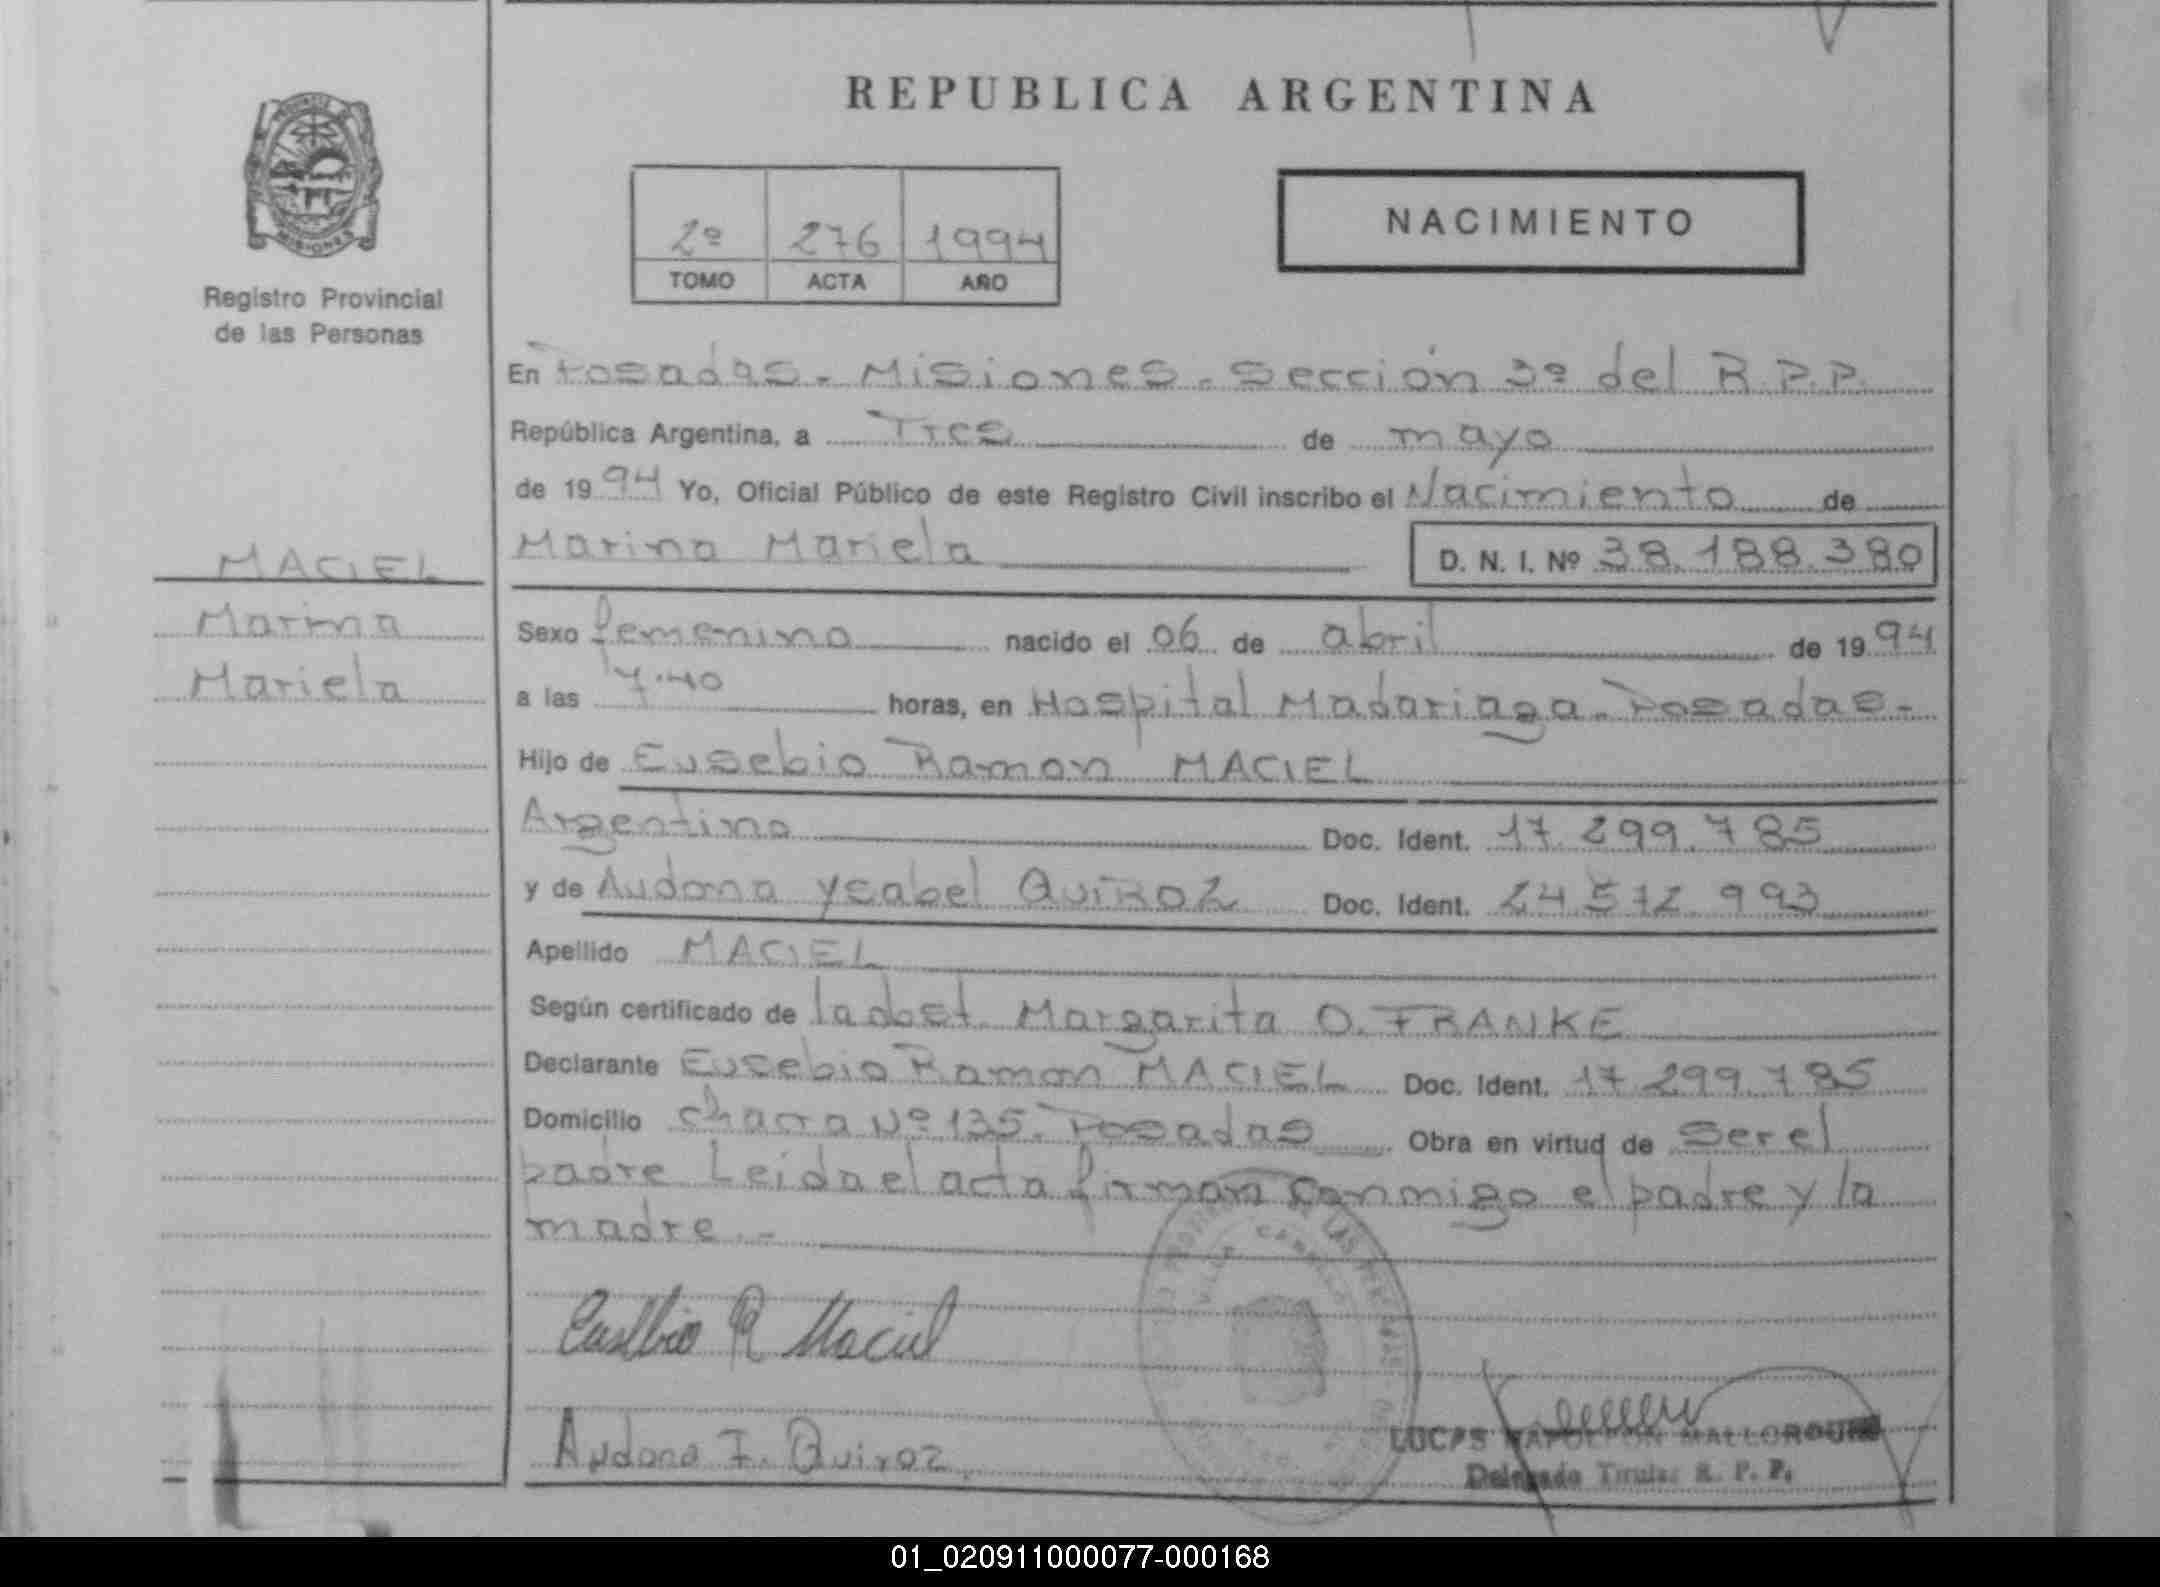 REPUBLICA ARGENTINA
2º 276 1994
TOMO ACTA AÑO
NACIMIENTO
MISIONES
Registro Provincial
de las Personas
MACIEL
Marina
Mariela
En Posadas - Misiones - Sección 3º del R.P.P.
República Argentina, a Tres de mayo
de 1994 Yo, Oficial Público de este Registro Civil inscribo el Nacimiento de
Marina Mariela D. N. I. Nº 38.188.380
Sexo femenino nacido el 06 de abril de 1994
a las 7.40 horas, en Hospital Madariaga - Posadas -
Hijo de Eusebio Ramon MACIEL
Argentino Doc. Ident. 17.299.785
y de Audona Ysabel QUIROZ Doc. Ident. 24.572.993
Apellido MACIEL
Según certificado de la obst. Margarita O. FRANKE
Declarante Eusebio Ramon MACIEL Doc. Ident. 17.299.785
Domicilio chacra Nº 135. Posadas Obra en virtud de Ser el
padre Leida el acta firman conmigo el padre y la
madre. -
Eusebio R Maciel
Audona I. Quiroz
LUCAS NAPOLEON
Delegado Titular R. P. P.
01_020911000077-000168